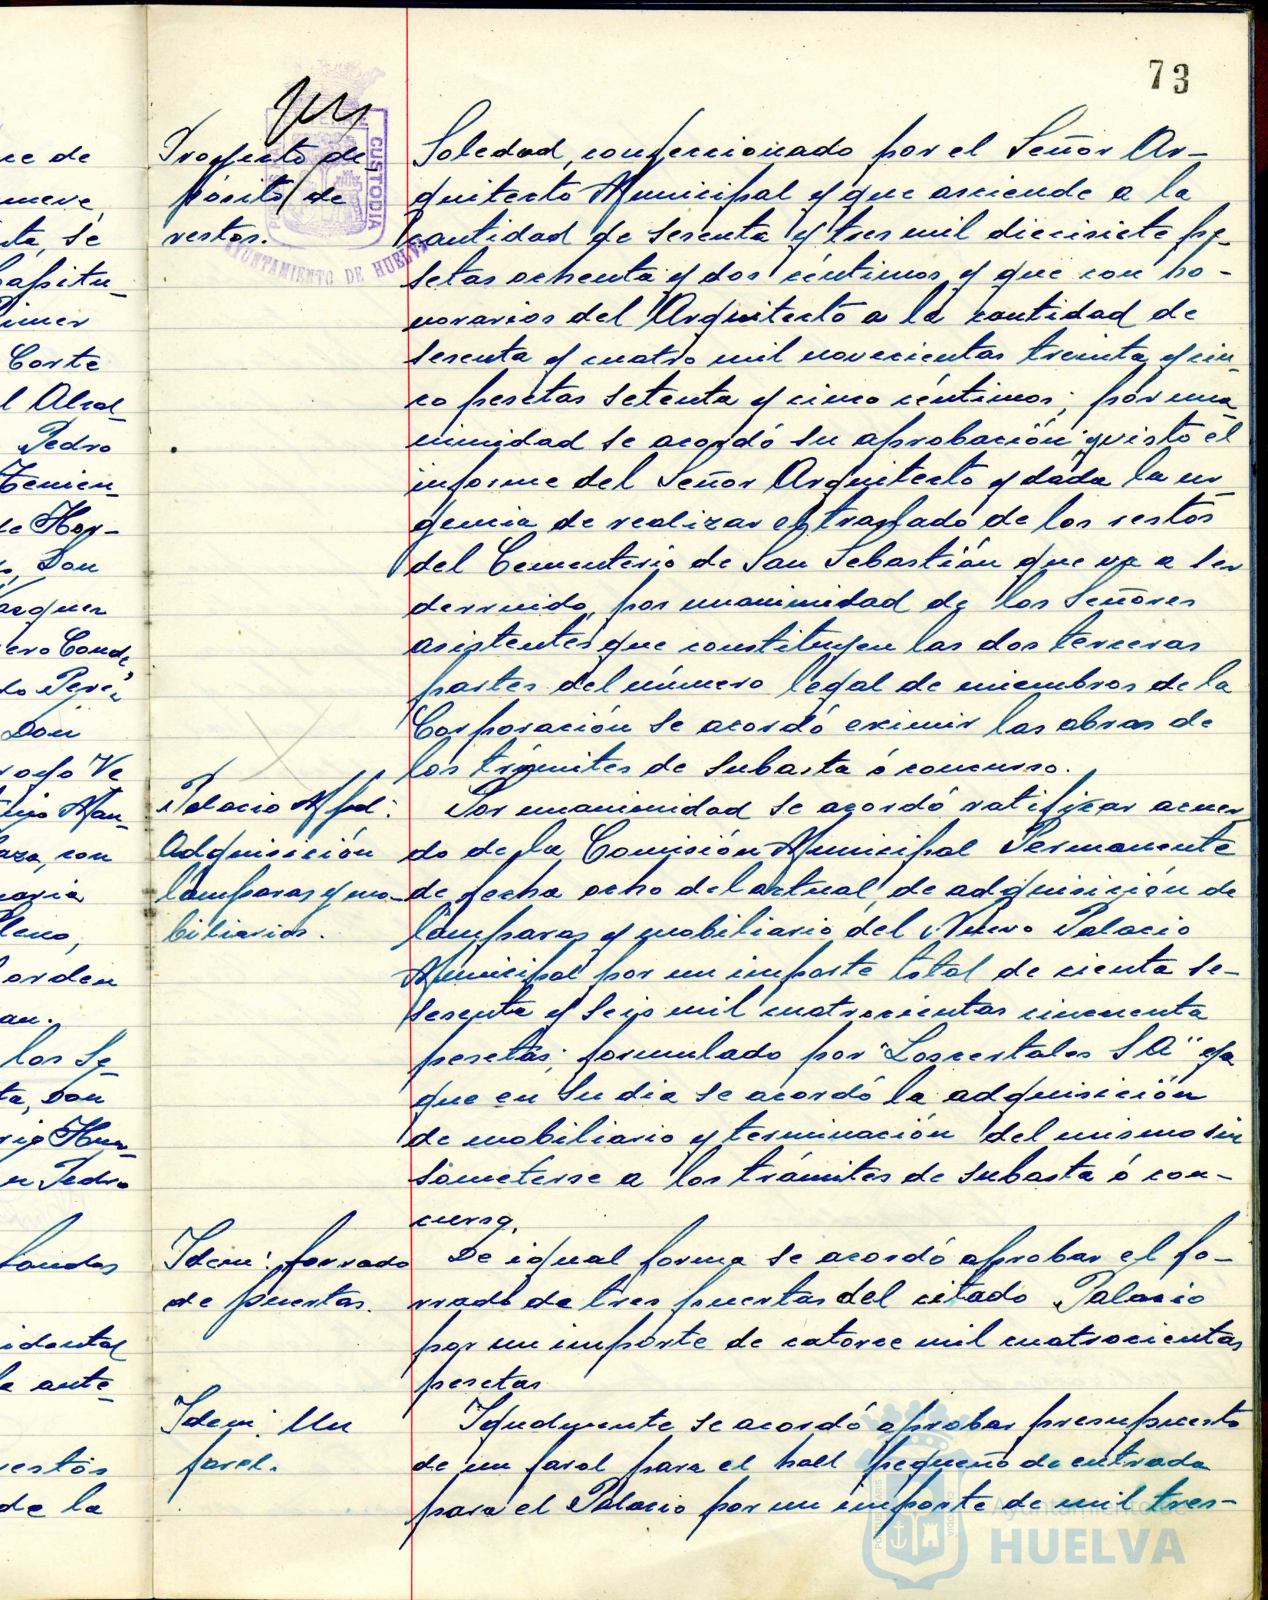 73
Proyecto de
pósito de
restos.
Soledad, confeccionado por el Señor Ar-
quitecto Municipal y que asciende a la
cantidad de sesenta y tres mil diecisiete pe-
setas ochenta y dos céntimos y que con ho-
norarios del Arquitecto a la cantidad de
sesenta y cuatro mil novecientas treinta y cin-
co pesetas setenta y cinco céntimos; por una-
nimidad se acordó su aprobación y visto el
informe del Señor Arquitecto y dada la ur-
gencia de realizar el traslado de los restos
del Cementerio de San Sebastián que va a ser
derruido, por unanimidad de los Señores
asistentes que constituyen las dos terceras
partes del número legal de miembros de la
Corporación se acordó eximir las obras de
los trámites de subasta ó concurso.
Palacio Mpal:
Adquisición
lámparas y mo-
biliarios.
Por unanimidad se acordó ratificar acuer-
do de la Comisión Municipal Permanente
de fecha ocho del actual, de adquisición de
lámparas y mobiliario del Nuevo Palacio
Municipal por un importe total de cienta se-
senta y seis mil cuatrocientas cincuenta
pesetas; formulado por "Loscertales S A" ya
que en su dia se acordó la adquisición
de mobiliario y terminación del mismo sin
someterse a los trámites de subasta ó con-
curso.
Idem: forrado
de puertas.
De igual forma se acordó aprobar el fo-
rrado de tres puertas del citado Palacio
por un importe de catorce mil cuatrocientas
pesetas
Idem: Un
farol.
Igualmente se acordó aprobar presupuesto
de un farol para el hall pequeño de entrada
para el Palacio por un importe de mil tres-
CUSTODIA
AYUNTAMIENTO DE HUELVA
Ayuntamiento de
HUELVA